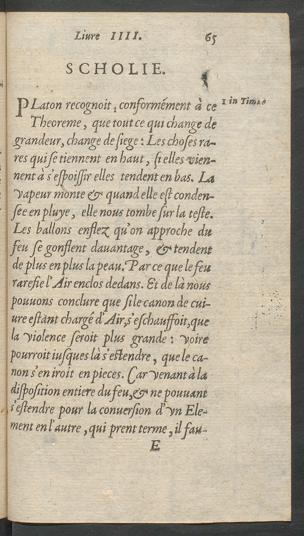 Liure IIII. 65
SCHOLIE.
PLaton recognoit, conformément à ce
Theoreme, que tout ce qui change de
grandeur, change de siege: Les choses ra-
res qui se tiennent en haut, si elles vien-
nent à s'espoissir elles tendent en bas. La
vapeur monte & quand elle est conden-
sée en pluye, elle nous tombe sur la teste.
Les ballons enflez qu'on approche du
feu se gonflent dauantage, & tendent
de plus en plus la peau. Par ce que le feu
rarefie l'Air enclos dedans. Et de là nous
pouuons conclure que si le canon de cui-
ure estant chargé d'Air, s'eschauffoit, que
la violence seroit plus grande: voire
pourroit iusques là s'estendre, que le ca-
non s'en iroit en pieces. Car venant à la
disposition entiere du feu, & ne pouuant
s'estendre pour la conuersion d'vn Ele-
ment en l'autre, qui prent terme, il fau-
E
1 in Timæo